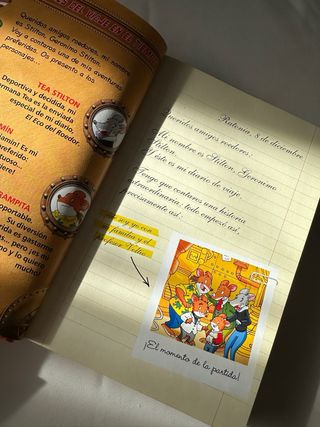 Queridos amigos roedores, mi nombre
es Stilton, Geronimo Stilton.
Voy a contaros una de mis aventuras
preferidas. Os presento a los
personajes...
TEA STILTON
Deportiva y decidida, mi
hermana Tea es la enviada
especial de mi diario,
El Eco del Roedor.
MÍN
jamín! Es mi
preferido.
tuoso.
jere!
RAMPITA
portable.
Su diversión
rida es gastarme
s... pero ¡es mi
no y lo quiero
mucho!
Ratonia, 8 de diciembre
Queridos amigos roedores:
Mi nombre es Stilton, Geronimo
Stilton.
Y éste es mi diario de viaje.
Tengo que contaros una historia
extraordinaria, todo empezó así,
precisamente así.
soy yo con
familia y el
¡El momento de la partida!